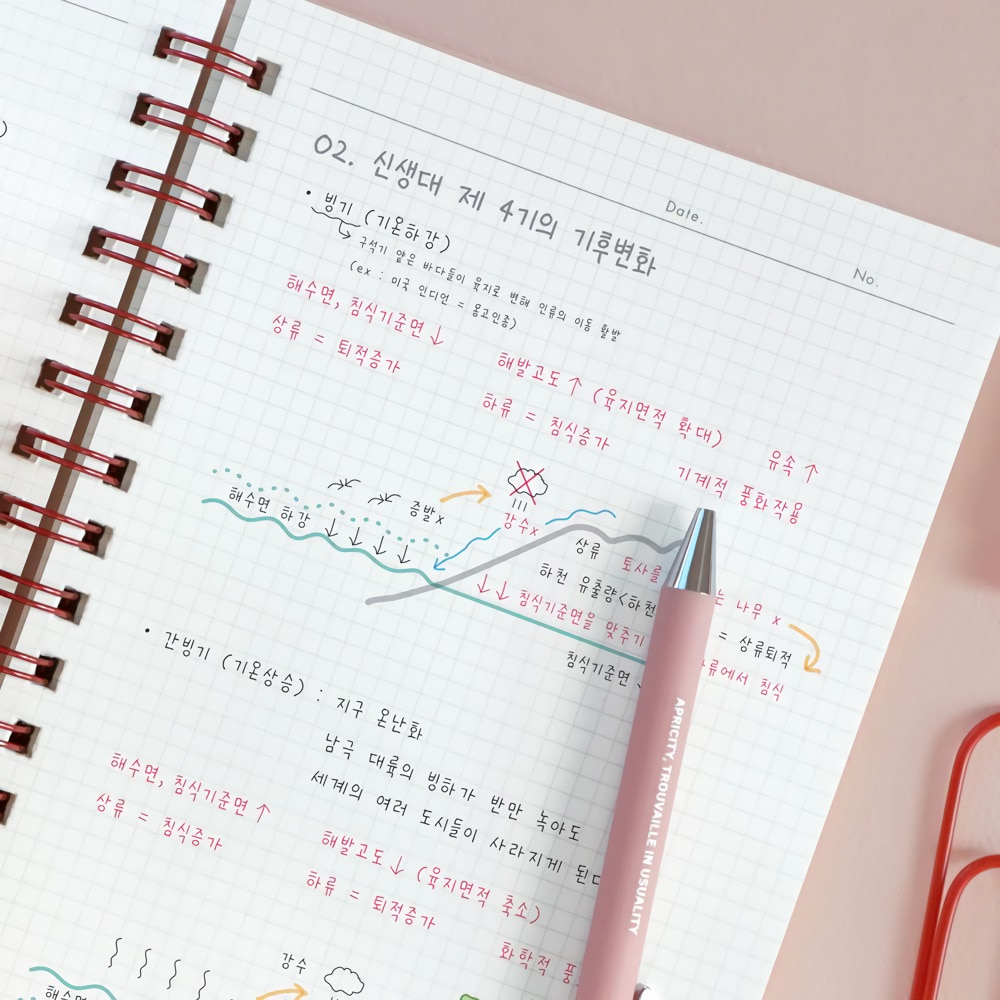 Date.
No.
02. 신생대 제 4기의 기후변화
• 빙기 (기온하강)
구석기 얕은 바다들이 육지로 변해 인류의 이동 활발
(ex : 미국 인디언 = 몽고인종)
해수면, 침식기준면 ↓
상류 = 퇴적증가
해발고도 ↑ (육지면적 확대)
하류 = 침식증가
유속 ↑
기계적 풍화작용
해수면 하강 ↓ ↓ ↓ ↓
증발x
강수x
상류 토사를
는 나무 x
하천 유출량<하천
= 상류퇴적
↓↓ 침식기준면을 맞추기
하류에서 침식
침식기준면
• 간빙기 (기온상승) : 지구 온난화
남극 대륙의 빙하가 반만 녹아도
세계의 여러 도시들이 사라지게 된다
해수면, 침식기준면 ↑
상류 = 침식증가
해발고도 ↓ (육지면적 축소)
하류 = 퇴적증가
화학적 풍
강수
해수면
APRICITY, TROUVAILLE IN USUALITY